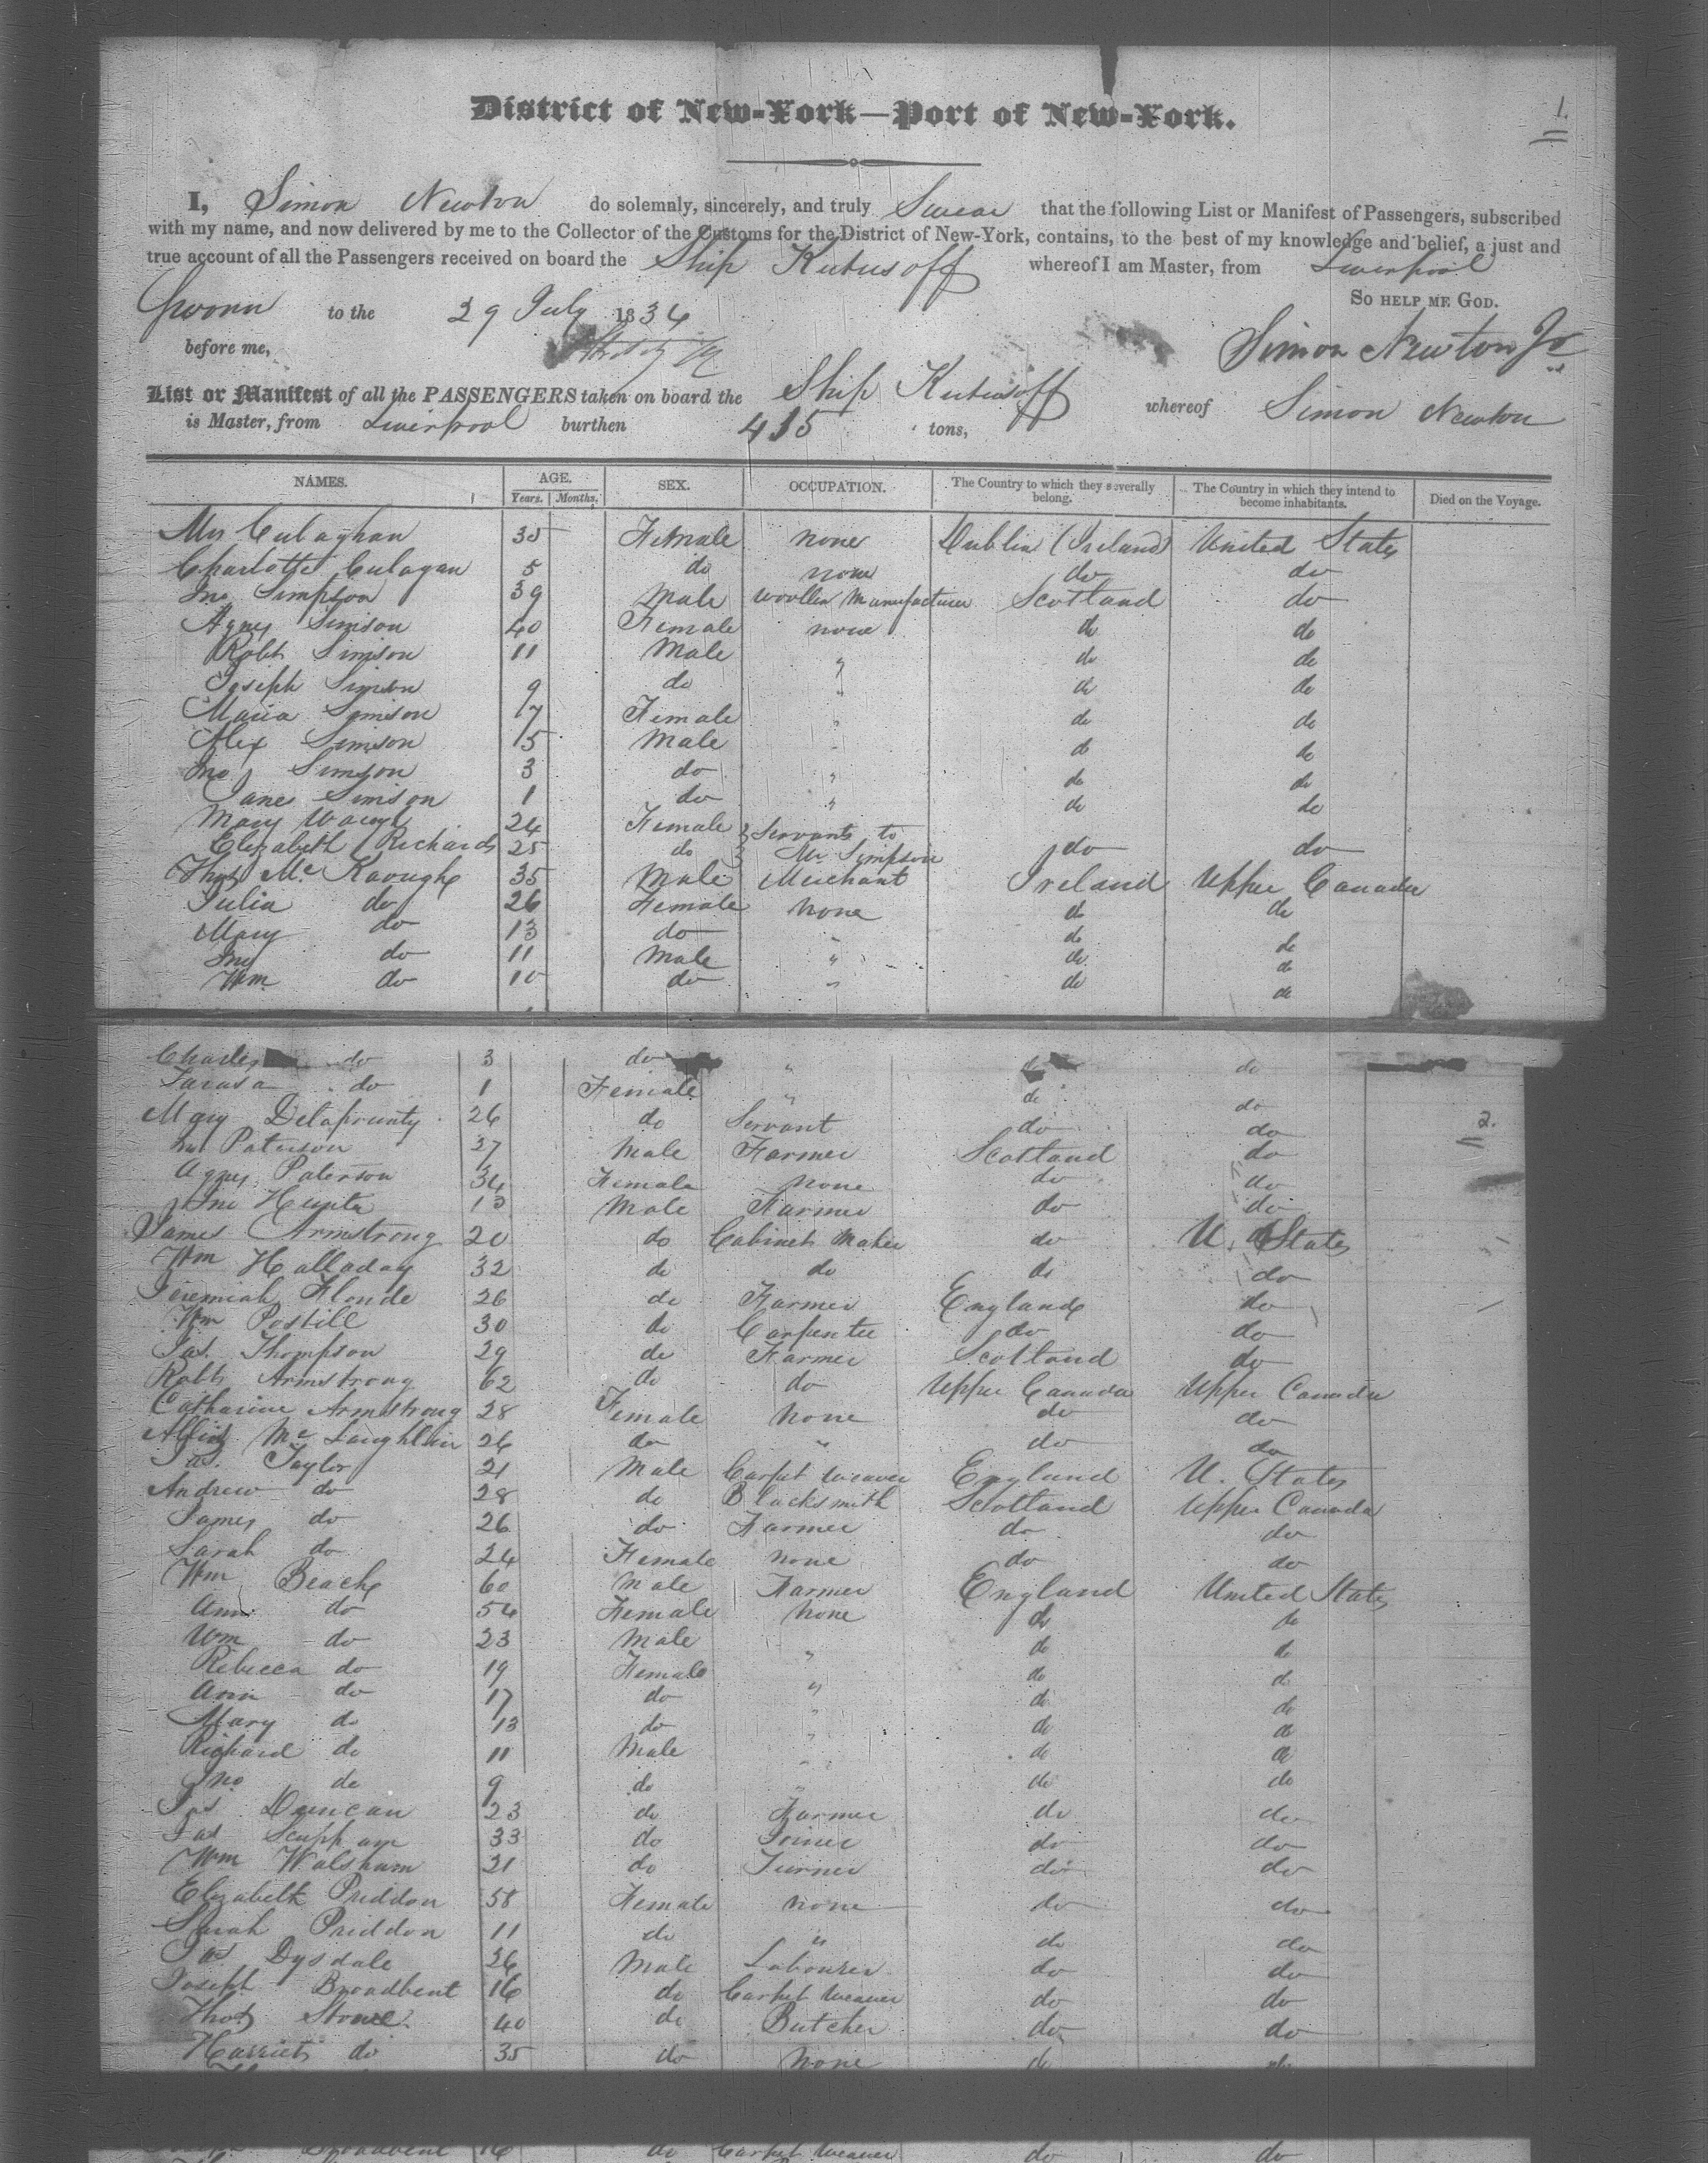 1.
District of New-York—Port of New-York.
I, Simon Newton do solemnly, sincerely, and truly Swear that the following List or Manifest of Passengers, subscribed
with my name, and now delivered by me to the Collector of the Customs for the District of New-York, contains, to the best of my knowledge and belief, a just and
true account of all the Passengers received on board the Ship Kutusoff whereof I am Master, from Liverpool
So help me God.
Sworn to the 29 July 1834
before me,
Simon Newton Jr
List or Manifest of all the PASSENGERS taken on board the Ship Kutusoff whereof Simon Newton
is Master, from Liverpool burthen 415 tons,
NAMES. AGE. Years. Months. SEX. OCCUPATION. The Country to which they severally belong. The Country in which they intend to become inhabitants. Died on the Voyage.
Mrs Culaghan 35 Female none Dublin (Ireland) United States
Charlotte Culagan 5 do none do do
Jno Simpson 39 Male Woollen Manufacturer Scotland do
Agnes Simison 40 Female none do do
Robt Simison 11 Male " do do
Joseph Simison 9 do " do do
Maria Simison 17 Female " do do
Alex Simison 15 Male " do do
Jno Simson 3 do " do do
Jane Simison 1 do " do do
Mary Waugh 24 Female Servants to
Elizabeth Richards 25 do Mr Simpson do do
Thos Mc Kaough 35 Male Merchant Ireland Upper Canada
Julia do 26 Female none do do
Mary do 13 do " do do
Jno do 11 Male " do do
Wm do 10 do " do do
Charles do 3 do " do do
do 1 Female " do do
2.
Mary 26 do Servant do do
Paterson 37 Male Farmer Scotland do
Agnes Paterson 34 Female none do do
Jno 13 Male Farmer do do
James Armstrong 20 do Cabinet Maker do U. States
Wm Halladay 32 do do do do
Jeremiah 26 do Farmer England do
Wm Postill 30 do Carpenter do do
Jas. Thompson 29 do Farmer Scotland do
Robt Armstrong 62 do do Upper Canada Upper Canada
Catharine Armstrong 28 Female none do do
Mc Laughlin 26 do " do do
Jas. Taylor 21 Male Carpet Weaver England U. States
Andrew do 28 do Blacksmith Scotland Upper Canada
James do 26 do Farmer do do
Sarah do 24 Female none do do
Wm Beach 60 Male Farmer England United States
Ann do 54 Female none do do
Wm do 23 Male " do do
Rebecca do 19 Female " do do
Ann do 17 do " do do
Mary do 13 do " do do
Richard do 11 Male " do do
Jno do 9 do " do do
Jas Duncan 23 do Farmer do do
Jas Scupham 33 do Joiner do do
Wm Walsham 21 do Turner do do
Elizabeth Priddon 58 Female none do do
Sarah Priddon 11 do " do do
Jas Dysdale 26 Male Labourer do do
Joseph Broadbent 16 do Carpet Weaver do do
Thos Stowe 40 do Butcher do do
Harriet do 35 do none do do
Broadbent 16 do Carpet Weaver do do